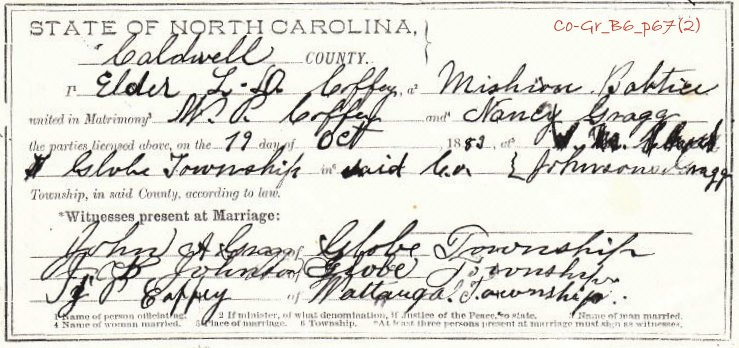 Co-Gr_B6_p67(2)
STATE OF NORTH CAROLINA,
Caldwell COUNTY.
I¹ Elder L. D. Coffey, a² Mishion Babtice
united in Matrimony³ W. P. Coffey and⁴ Nancy Gragg
the parties licensed above, on the 19 day of Oct 1883, at⁵
Globe Township in said Co. { Johnson Gragg
Township, in said County, according to law.
*Witnesses present at Marriage:
John A Gragg of Globe Township
Johnson of Globe Township
P of Wattauga Township.
1 Name of person officiating. 2 If minister, of what denomination, if Justice of the Peace, so state. 3 Name of man married.
4 Name of woman married. 5 Place of marriage. 6 Township. *At least three persons present at marriage must sign as witnesses.